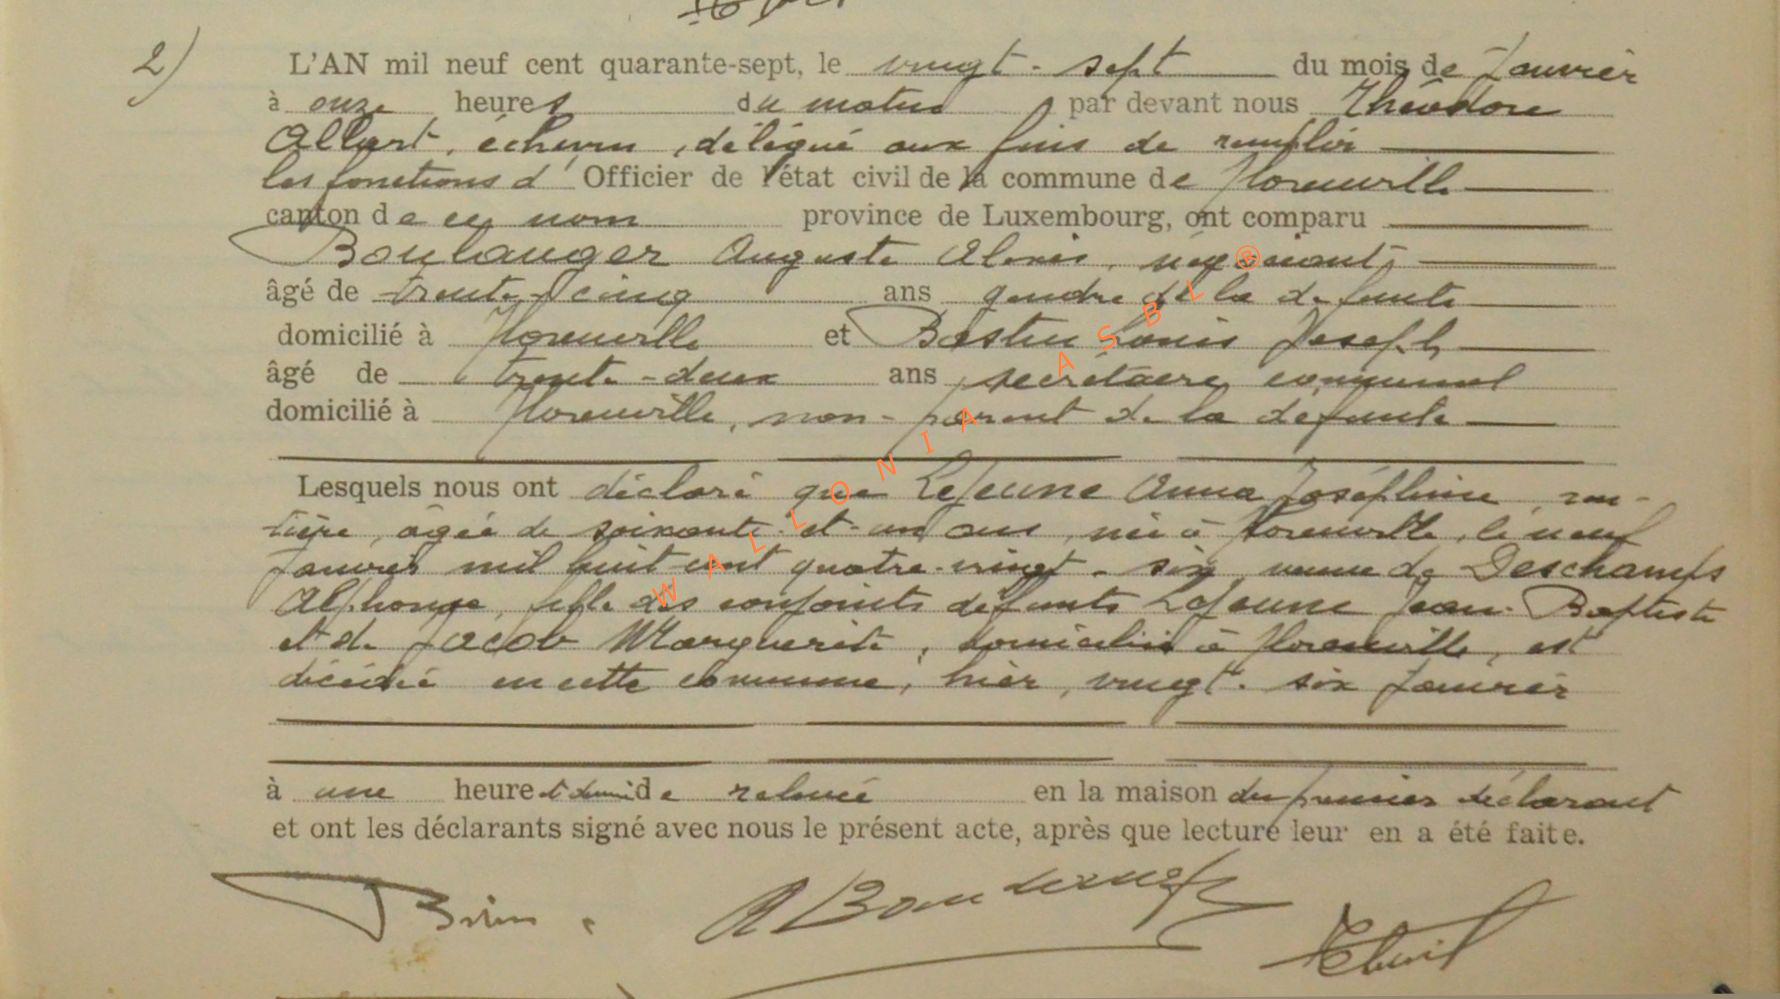 2)
L'AN mil neuf cent quarante-sept, le vingt-sept du mois de Janvier
à onze heures du matin par devant nous Théodore
Allart, échevin, délégué aux fins de remplir
les fonctions d'Officier de l'état civil de la commune de Florenville
canton de ce nom province de Luxembourg, ont comparu
Boulanger Auguste Alexis, négociant,
âgé de trente cinq ans gendre de la defunte
domicilié à Florenville et Bastin Louis Joseph
âgé de trente-deux ans, secrétaire communal
domicilié à Florenville, non-parent de la défunte
Lesquels nous ont déclaré que Lejeune Anna Joséphine, ren-
tière, âgée de soixante-et-un ans, née à Florenville, le neuf
Janvier mil huit cent quatre-vingt-six, veuve de Deschamps
Alphonse, fille des conjoints défunts Lejeune Jean-Baptiste
et de Jacob Marguerite, domiciliée à Florenville, est
décédée en cette commune, hier, vingt-six Janvier
à une heure et demi de relevée en la maison du premier déclarant
et ont les déclarants signé avec nous le présent acte, après que lecture leur en a été faite.
WALLONIA ASBL ®